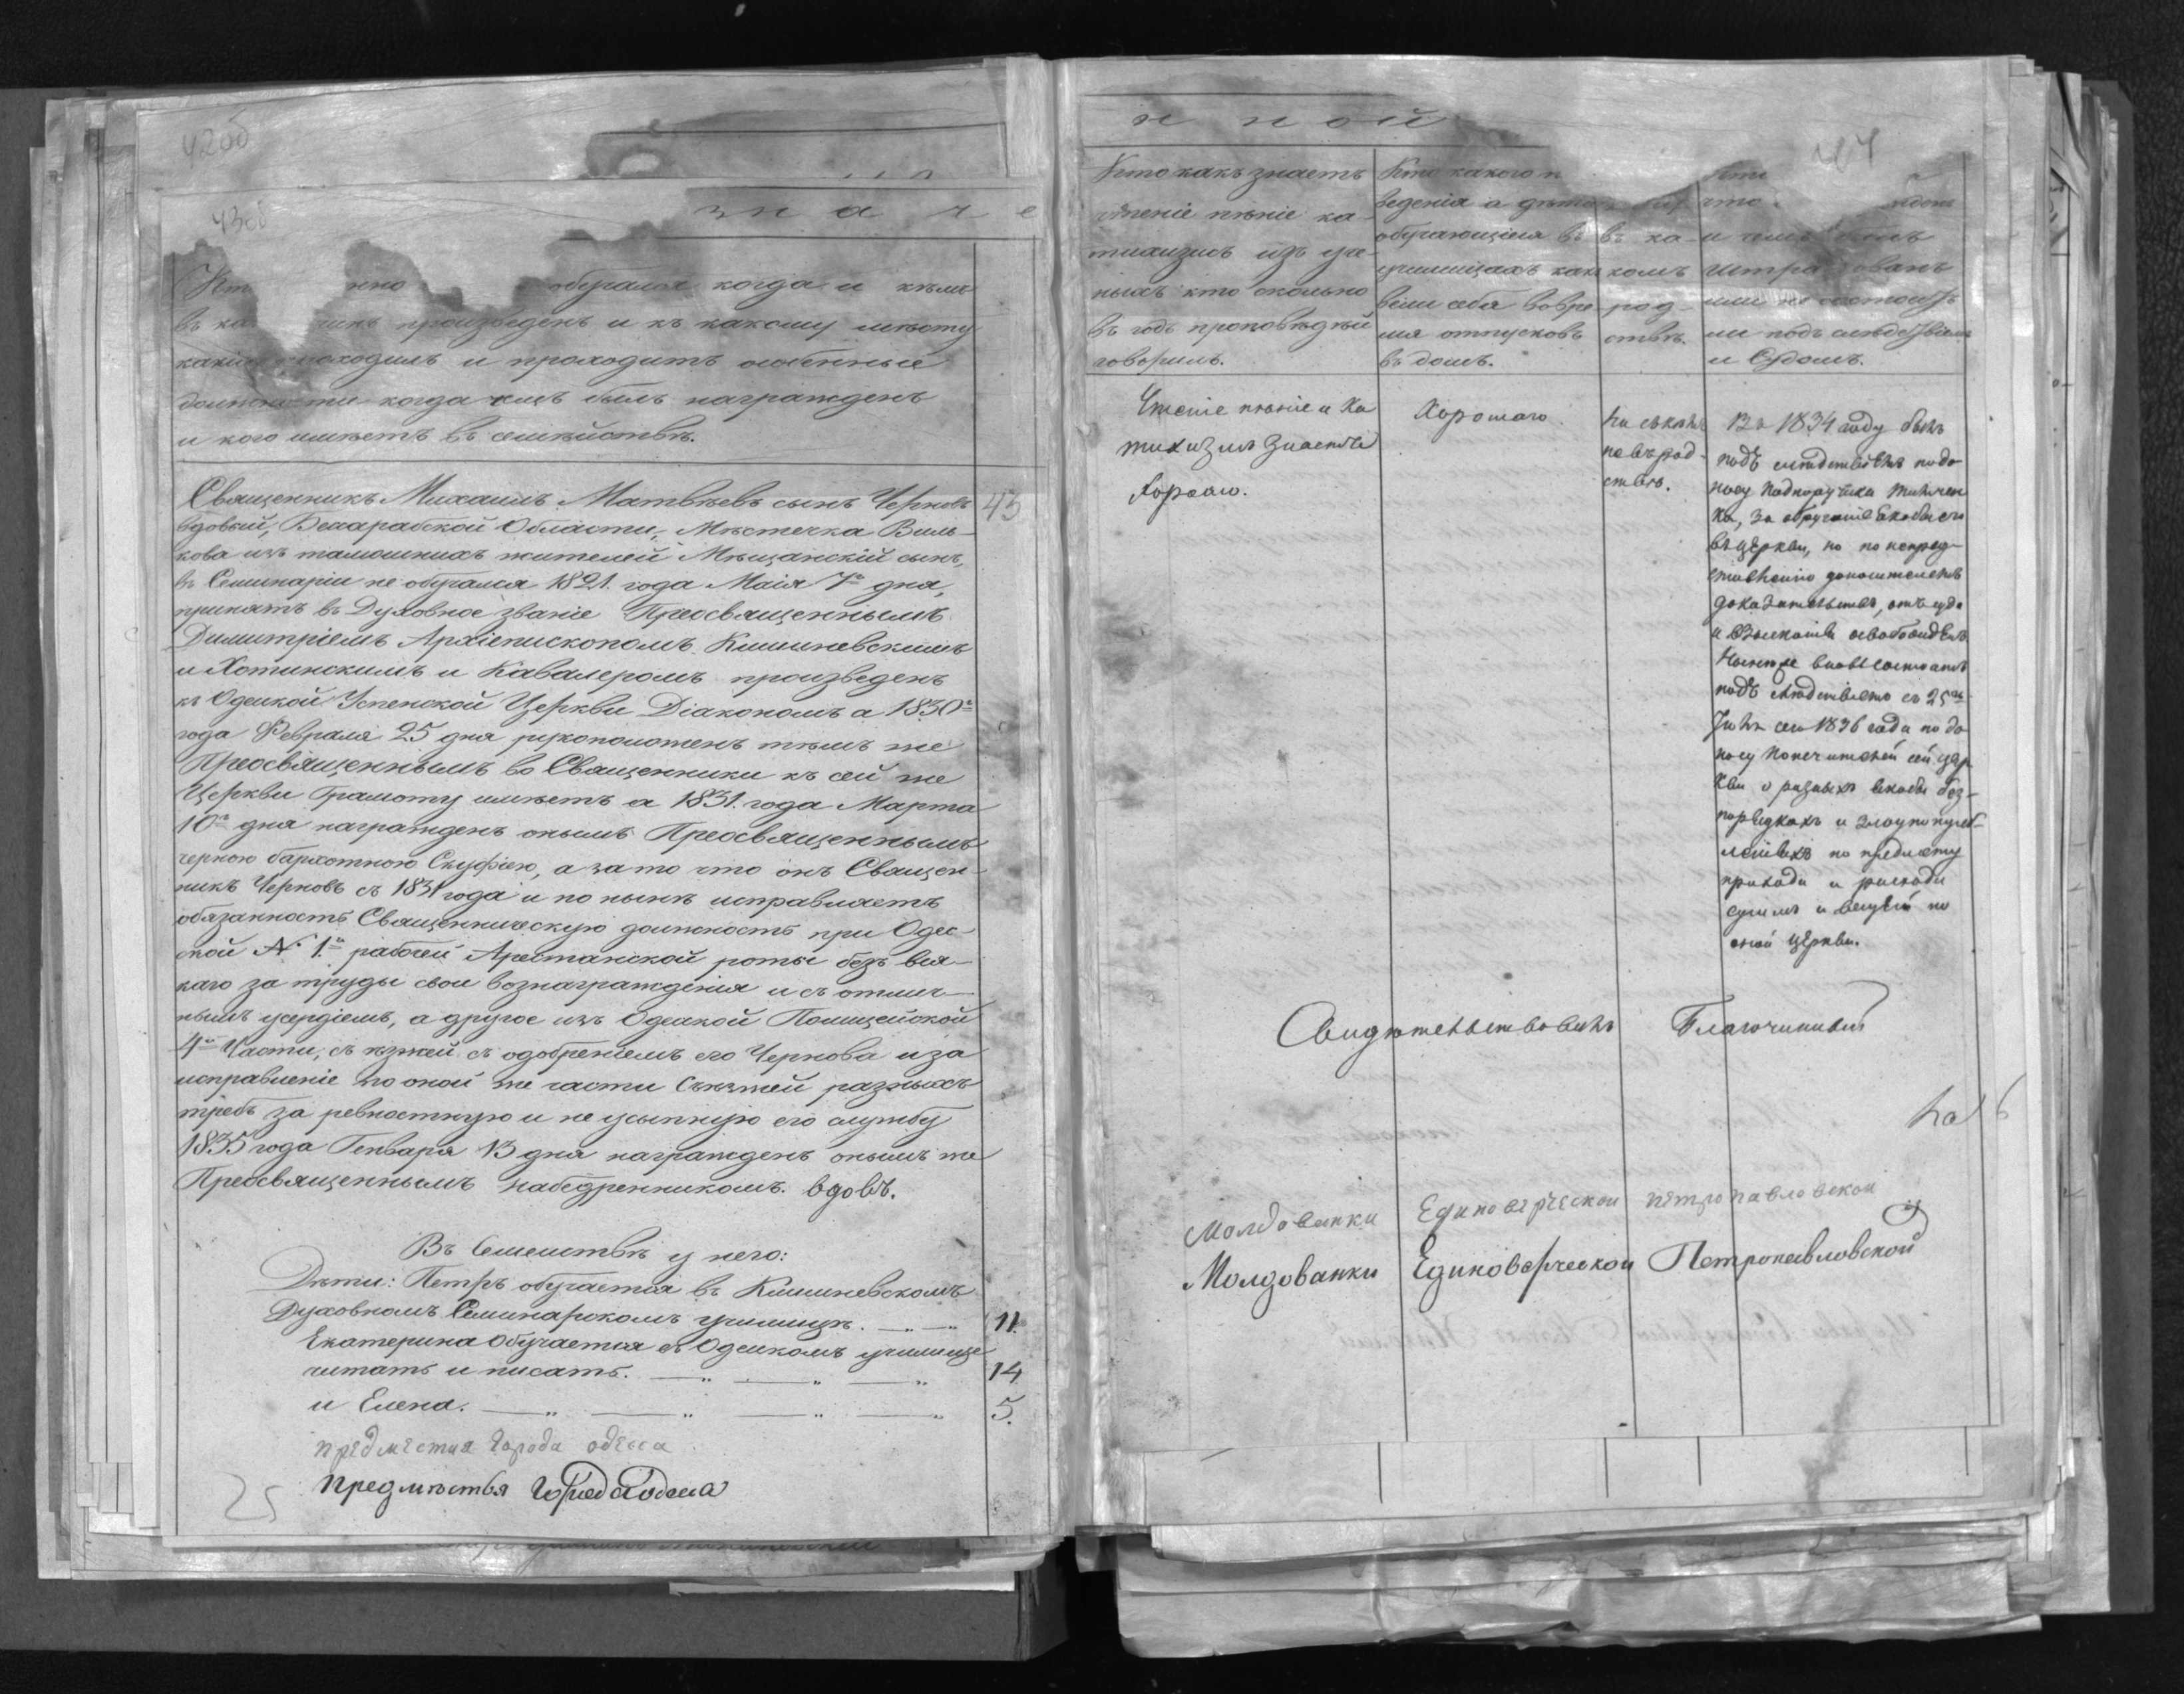 42об
43об
зна че
обучался когда и кѣмъ
произведенъ и къ какому мѣсту
проходилъ и проходитъ особенныя
должности когда чемъ былъ награжденъ
и кого имѣетъ въ семѣйствѣ.
Священникъ Михаилъ Матвѣевъ сынъ Черновъ 43
вдовый, Бессарабской Области, Мѣстечка Виль-
кова изъ тамошнихъ жителей Мѣщанскій сынъ,
въ Семинаріи не обучался 1821. года Маія 7го дня,
принятъ въ Духовное званіе Преосвященнымъ
Димитріемъ Архіепископомъ Кишиневскимъ
и Хотинскимъ и Кавалеромъ произведенъ
къ Одеской Успенской Церкви Діакономъ а 1830го
года Февраля 25 дня рукоположенъ тѣмъ же
Преосвященнымъ во Священники къ сей же
Церкви Грамоту имѣетъ а 1831. года Марта
10го дня награжденъ онымъ Преосвященнымъ
черною бархотною Скуфіею, а за то что онъ Священ-
никъ Черновъ съ 1831 года и по нынѣ исправляетъ
обязанность Священническую должность при Одес-
ской № 1й рабочей Арестанской роты безъ вся-
каго за труды свои вознагражденія и съ отлич-
нымъ усердіемъ, а другое изъ Одеской Полицейской
4й Части, съ езжей съ одобреніемъ его Чернова и за
исправленіе по оной же части Съезжей разныхъ
требъ за ревностную и не усыпную его службу
1835 года Генваря 13 дня награжденъ онымъ же
Преосвященнымъ набедренникомъ. вдовъ.
Въ Семействѣ у него:
Дѣти: Петръ обучается въ Кишиневскомъ
Духовномъ Семинарскомъ училищѣ. 11.
Екатерина Обучается въ Одескомъ училище
читать и писать. 14
и Елена. 5.
предместия города одесса
Предмѣстья Города Одесса
25
н ной
Кто какъ знаетъ
чтеніе пѣніе ка-
тихизисъ изъ уче-
ныхъ кто сколько
въ годъ проповѣдѣй
говорилъ.
Кто какого
веденія а дѣти
обучающіеся въ
училищахъ како
вели себя вовре-
мя отпусковъ
въ домъ.
въ ка-
комъ
род-
ствѣ.
что
и чемъ
штрафованъ
или не состоитъ
ли подъ слѣдствіемъ
и Судомъ.
Чтеніе пѣніе и Ка
тихизисъ знаетъ
хорошо.
Хорошаго
ни съкѣмъ
невъ род-
ствѣ.
Въ 1834 году былъ
подъ слѣдствіемъ подо
носу Подпоручика
ка, за обручение якобы его
въ церкви, но по непред-
ставленію доносителемъ
доказательствъ, отъ суда
и взыскания освобожденъ
Ныне же вновь состоитъ
подъ следствіемъ съ 25го
сего 1836 года по до
носу Попечителей сей цер
кви о разныхъ якобы без-
порядкахъ и злоупотреб-
леніяхъ по предмету
прихода и расхода
суммъ и вещей по
оной церкви.
Свидѣтельствовалъ Благочинный
Молдаванки Единоверческои петропавловскои
Молдованки Единоверческой Петропавловской